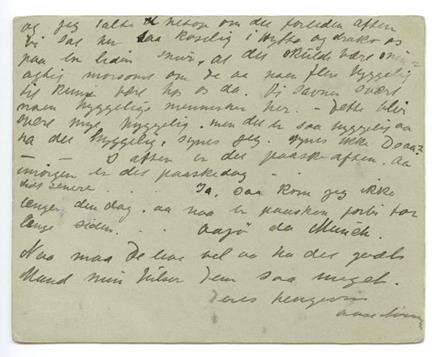 og jeg talte netop om det forleden aften
vi sat her saa koselig i hytta og drak os
paa en liden snur, at det skulde være
morsomt om de aa nåen flere hyggelig
til kunde være hos os da. Vi savner svært
noen hyggelige mennesker her. – Dette blir
svært mye hyggelig. men det er saa hyggelig aa
ha det hyggelig, synes jeg. synes ikke De aa?
— — I aften er det paaskeaften. aa
imorgen er det paaskedag . .
Ja, saa kom jeg ikke
længer den dag. aa naa er paasken forbi for
længe siden. . . . da Munch.
Naa maa De leve vel aa ha det godt
Mand min hilser Dem saa meget.
Deres hengivne